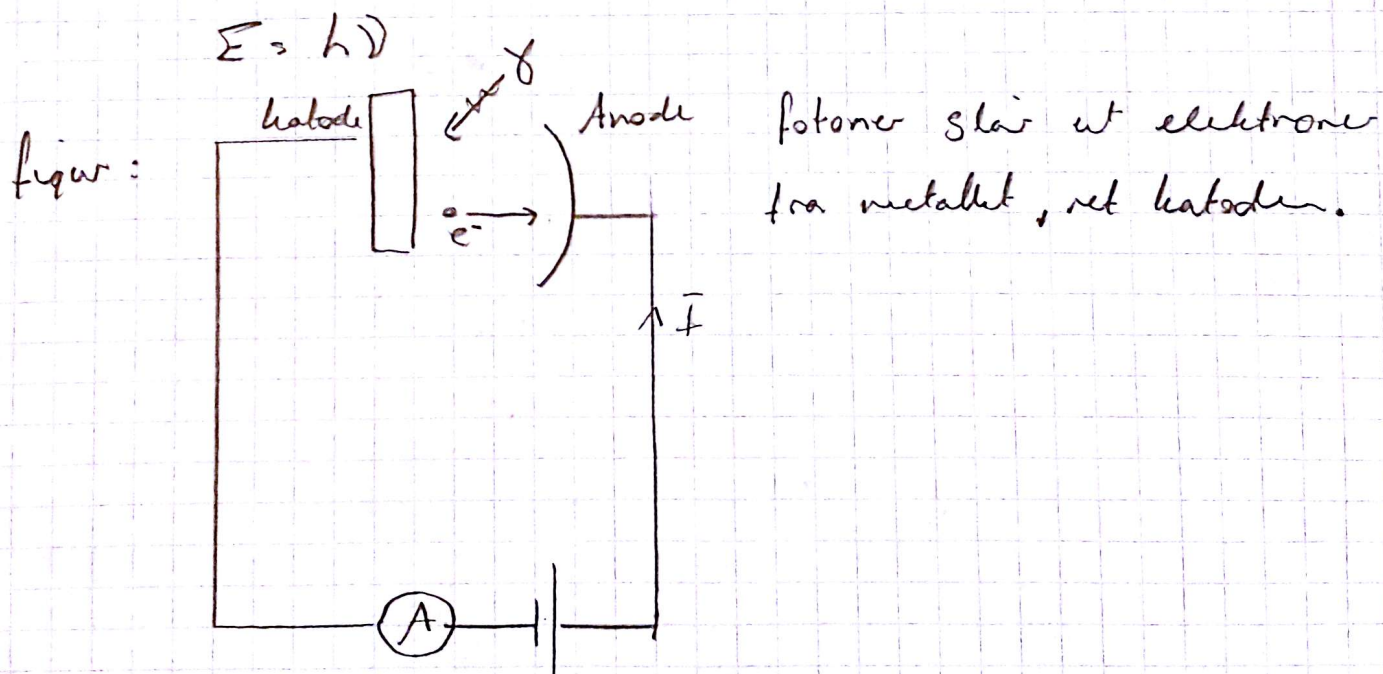 E = hν
katode
γ
Anode
figur :
e⁻
I
A
fotoner slår ut elektroner
fra metallet, ret katoden.